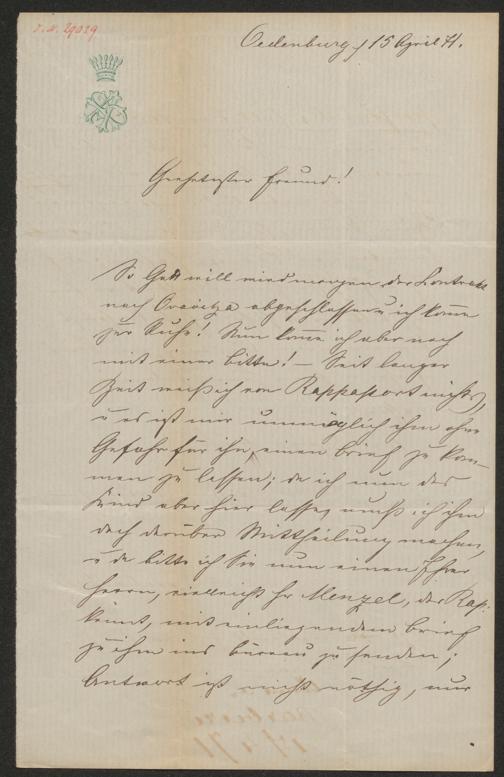 I. N. 29029
Oedenburg, 15 April 71.
Geehrtester Freund!
So Gott will wird morgen der Contract
nach Oravitza abgeschlossen u ich komme
zur Ruhe! Nun komme ich aber noch
mit einer bitte! – Seit langer
Zeit weiß ich von Rappaport nichts,
u es ist mir unmöglich ihm ohne
Gefahr für ihn, einen brief zu kom-
men zu lassen; da ich nun das
Kind aber hier lasse, muß ich ihm
doch darüber Mittheilung machen,
u da bitte ich Sie nun einen Ihrer
Herrn, vielleicht Hr Menzel, der Rap.
kennt, mit einliegendem brief
zu ihm ins bureau zu senden;
Antwort ist nicht nöthig, nur